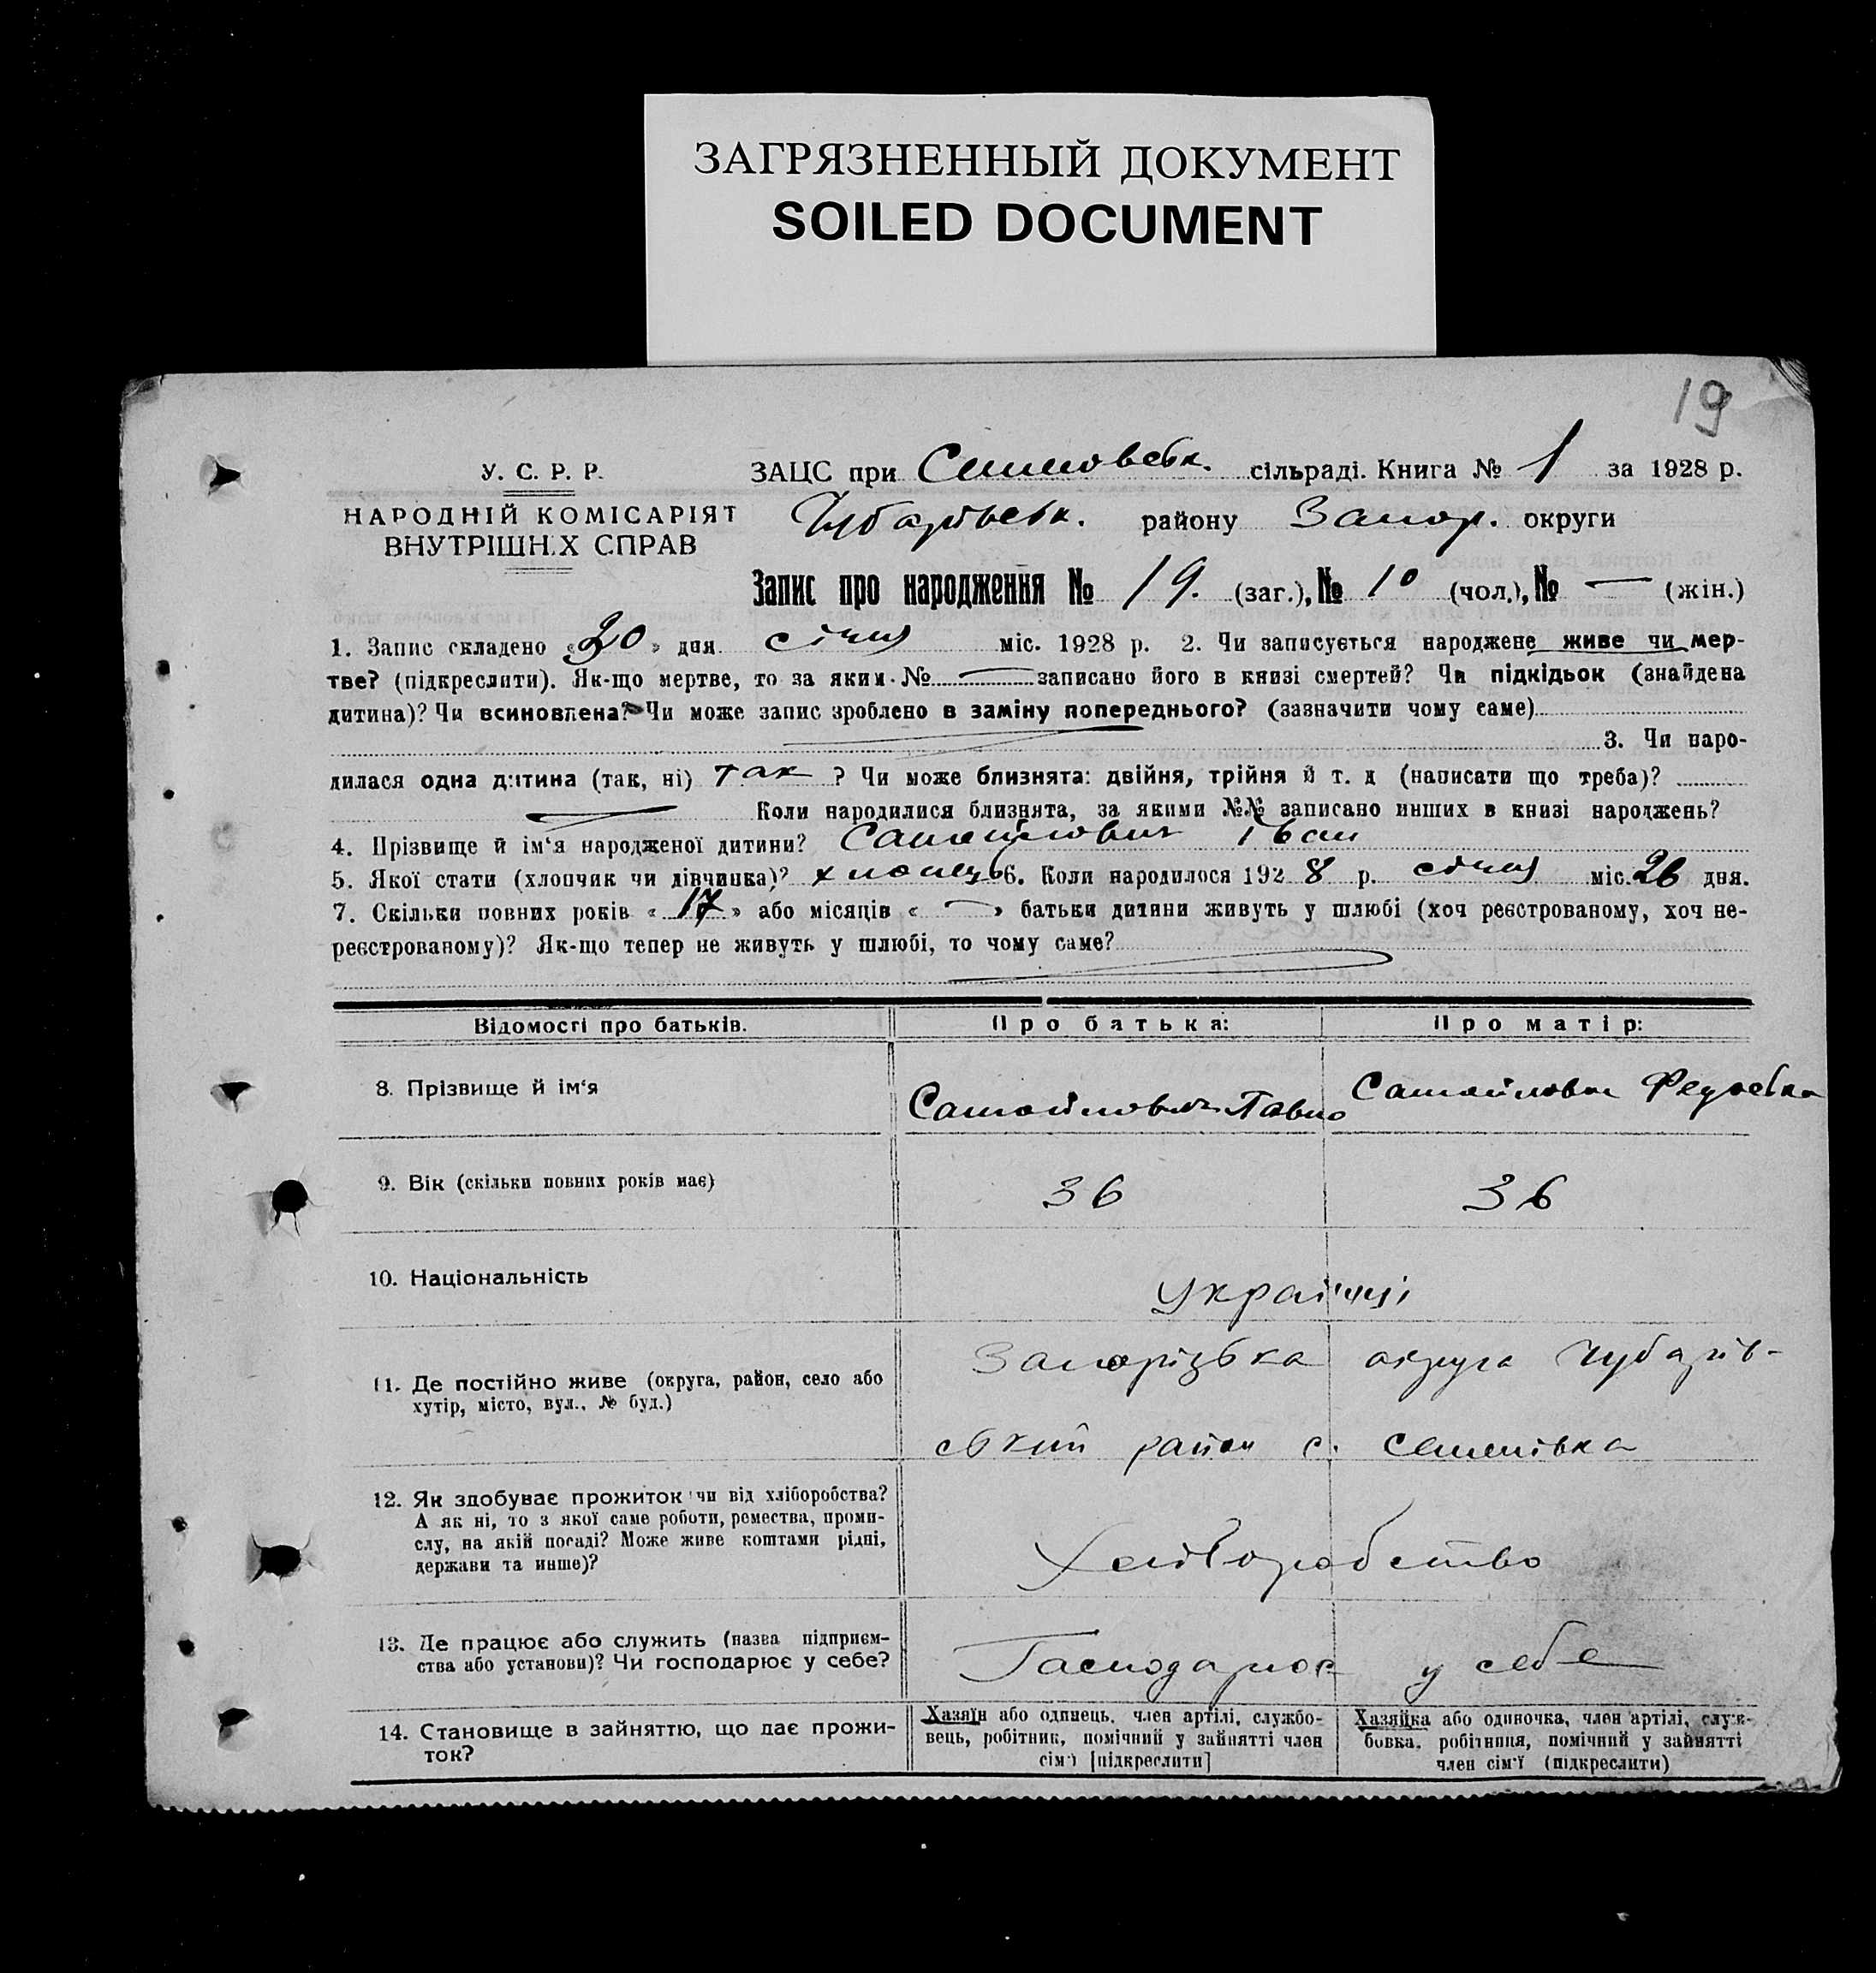 ЗАГРЯЗНЕННЫЙ ДОКУМЕНТ
SOILED DOCUMENT
19
У. С. Р. Р.
НАРОДНІЙ КОМІСАРІЯТ
ВНУТРІШНІХ СПРАВ
ЗАЦС при сільраді. Книга № 1 за 1928 р.
Чубарівськ. району Запор. округи
Запис про народження № 19. (заг.), № 10 (чол.), № — (жін.)
1. Запис складено «30» дня січня міс. 1928 р. 2. Чи записується народжене живе чи мер-
тве? (підкреслити). Як-що мертве, то за яким № — записано його в книзі смертей? Чи підкідьок (знайдена
дитина)? Чи всиновлена? Чи може запис зроблено в заміну попереднього? (зазначити чому саме)
3. Чи наро-
дилася одна дитина (так, ні) так ? Чи може близнята: двійня, трійня й т. д (написати що треба)?
Коли народилися близнята, за якими №№ записано инших в книзі народжень?
4. Прізвище й ім'я народженої дитини? Самойлович Іван
5. Якої статі (хлопчик чи дівчинка)? хлопець 6. Коли народилося 1928 р. січня міс. 26 дня.
7. Скільки повних років «17» або місяців « — » батьки дитини живуть у шлюбі (хоч реєстрованому, хоч не-
реєстрованому)? Як-що тепер не живуть у шлюбі, то чому саме?
Відомості про батьків. Про батька: Про матір:
8. Прізвище й ім'я Самойлович Павло Самойлович
9. Вік (скільки повних років має) 36 36
10. Національність Українці
11. Де постійно живе (округа, район, село або
хутір, місто, вул., № буд.)
Запорізька округа Чубарів-
ський район с. Семенівка
12. Як здобуває прожиток чи від хліборобства?
А як ні, то з якої саме роботи, ремества, проми-
слу, на якій посаді? Може живе коштами рідні,
держави та инше)?
Хліборобство
13. Де працює або служить (назва підприєм-
ства або установи)? Чи господарює у себе?
Господарює у себе
14. Становище в зайняттю, що дає прожи-
ток?
Хазяїн або одинець, член артілі, службо-
вець, робітник, помічний у зайнятті член
сім'ї [підкреслити]
Хазяйка або одиночка, член артілі, служ-
бовка, робітниця, помічний у зайнятті
член сім'ї (підкреслити)